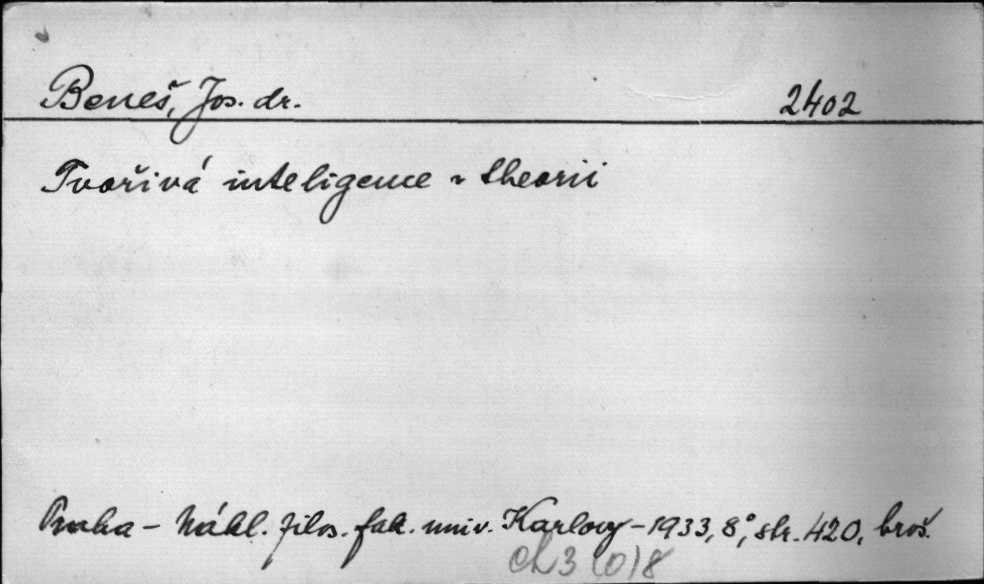 Beneš, Jos. dr. 2402
Tvořivá inteligence v theorii
Praha – Nákl. filos. fak. univ. Karlovy – 1933, 8°, str. 420, brož.